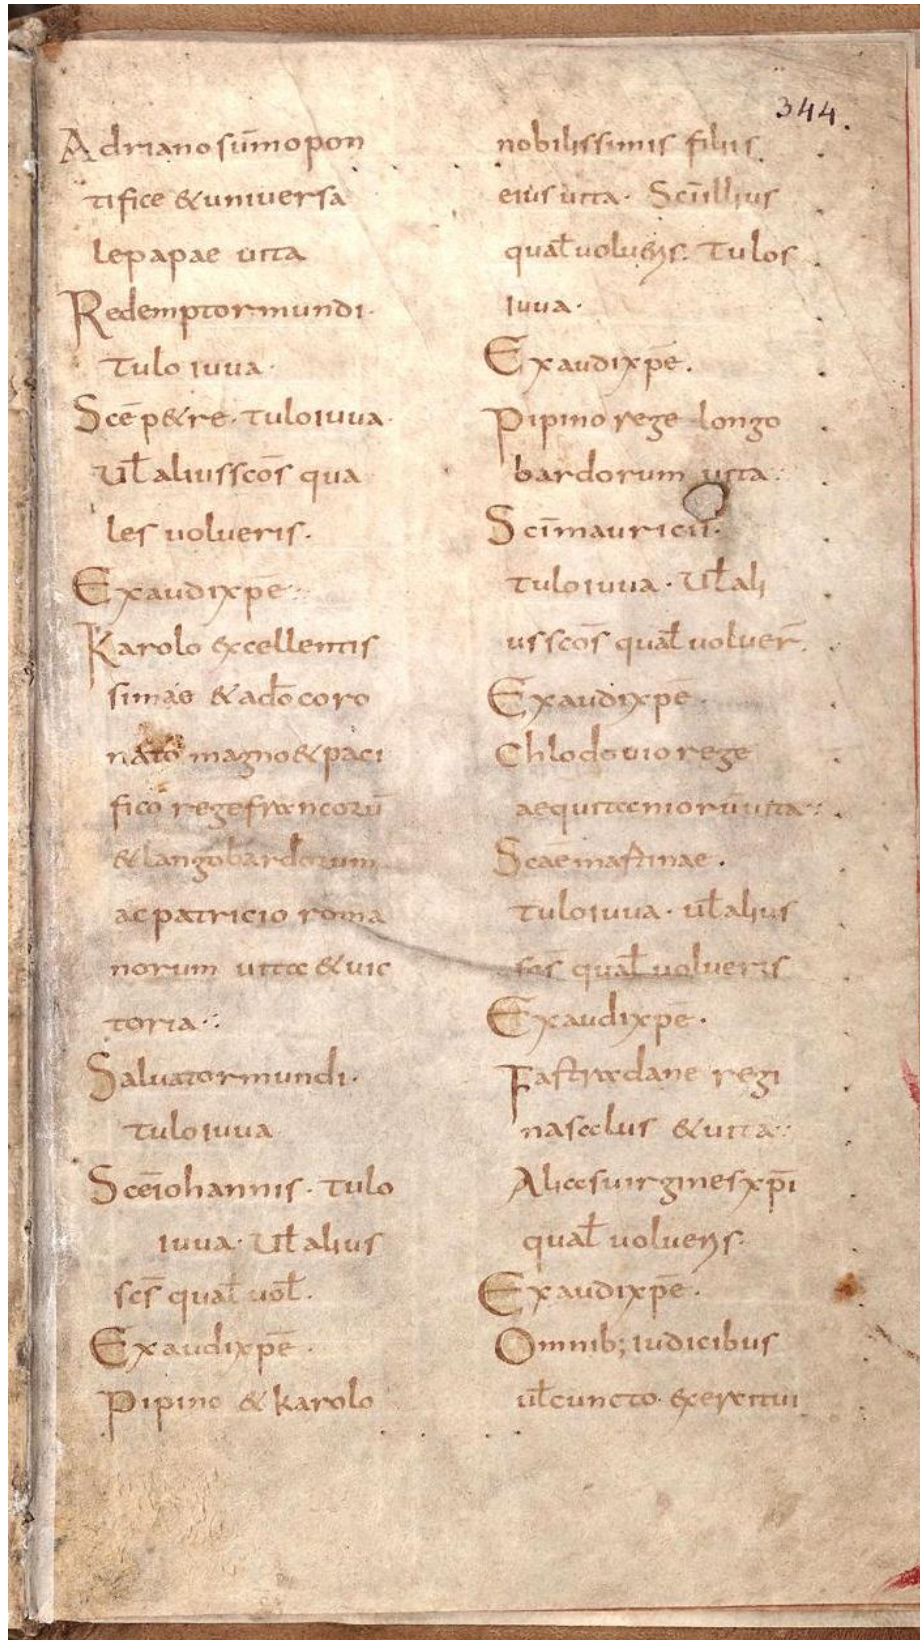 344.
Adriano sūmo pon
tifice & universa
le papae uita
Redemptor mundi·
Tu lo iuua·
Scē p&re· tu lo iuua·
Uƚ aliis scōs qua
les uolueris·
Exaudi xpē:
Karolo excellentis
simae & a dō coro
nato magno & paci
fico rege francorū
& langobardorum
ac patricio roma
norum uita & uic
toria:·
Saluator mundi·
tu lo iuua
Scē iohannis· Tu lo
iuua· Uƚ alius
scs̄ quaƚ uoƚ.
Exaudi xpē·
Pipino & karolo
nobilissimis filiis
eius uita·
quaƚ uolueris: Tu los
iuua·
Exaudi xpē.
Pipino rege longo
bardorum uita:
Scī mauricii·
tu lo iuua· Uƚ ali
us scōs quaƚ uoluer̄.
Exaudi xpē·
Chlodouio rege
aequitaniorū uita:·
Scāe martinae·
tu lo iuua· uƚ alius
scs̄ quaƚ uolueris
Exaudi xpē·
Fastradane regi
na salus & uita:·
Alias uirgines xpī
quaƚ uolueris:
Exaudi xpē·
Omnib; iudicibus
uƚ cuncto exercitui